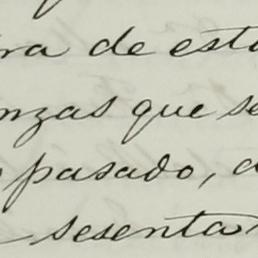 ra de esta
nzas que se
pasado, d
sesenta